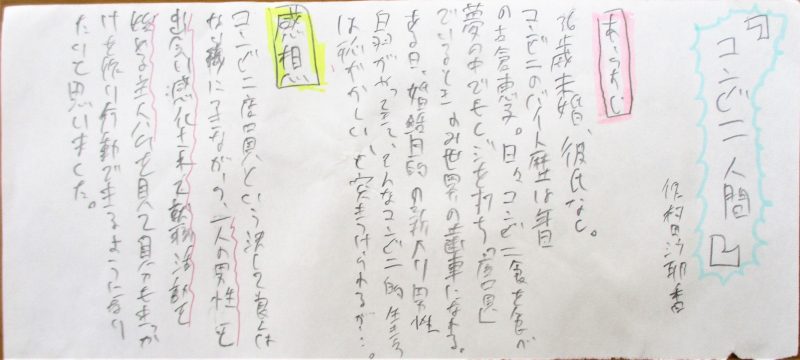 『コンビニ人間』
村田沙耶香
あらすじ
36歳未婚、彼氏なし。
コンビニのバイト歴は年目
の古倉恵子。日々コンビニ食を食べ
夢の中でもレジを打ち、「店員」
でいるときのみ世界の歯車になれる。
ある日、婚活目的の新入り男性
白羽がやってきて、そんなコンビニ的生き方
は恥ずかしいと突きつけられるが…。
感想
コンビニ店員という決して良くは
ない職につきながら、一人の男性と
出会い感化されて就職活動を
始める主人公を見て自分もきっか
けを作り行動できるようになり
たいて思いました。